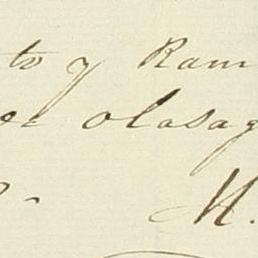 to y Ram
olasag
M.